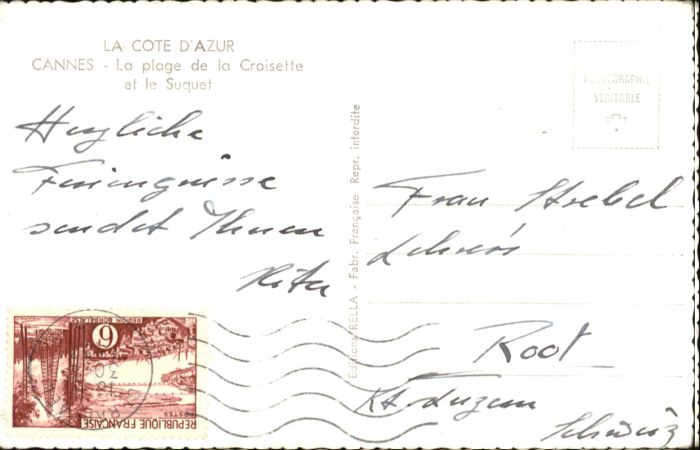 LA COTE D'AZUR
CANNES - La plage de la Croisette
et le Suquet
Herzliche
Feriengrüsse
sendet Ihnen
Rita
Editions RELLA - Fabr. Française Repr. interdite
PHOTOGRAPHIE
VÉRITABLE
Frau Strebel
Root
Kt. Luzern
Schweiz
6
REGION BORDELAISE
POSTES
REPUBLIQUE FRANÇAISE